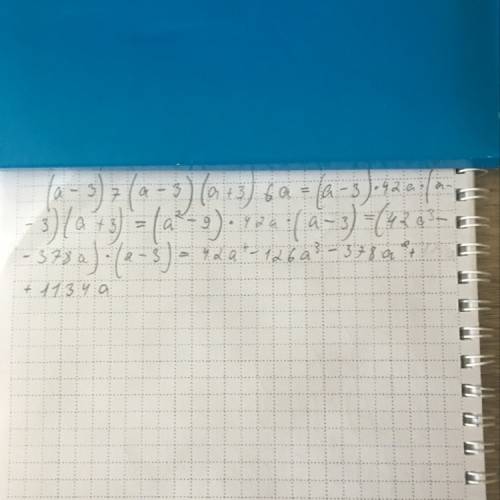 (a-3)7(a-3)(a+3)6a=(a-3)·42a·(a-
-3)(a+3)=(a²-9)·42a·(a-3)=(42a³-
-378a)·(a-3)=42a⁴-126a³-378a²+
+1134a